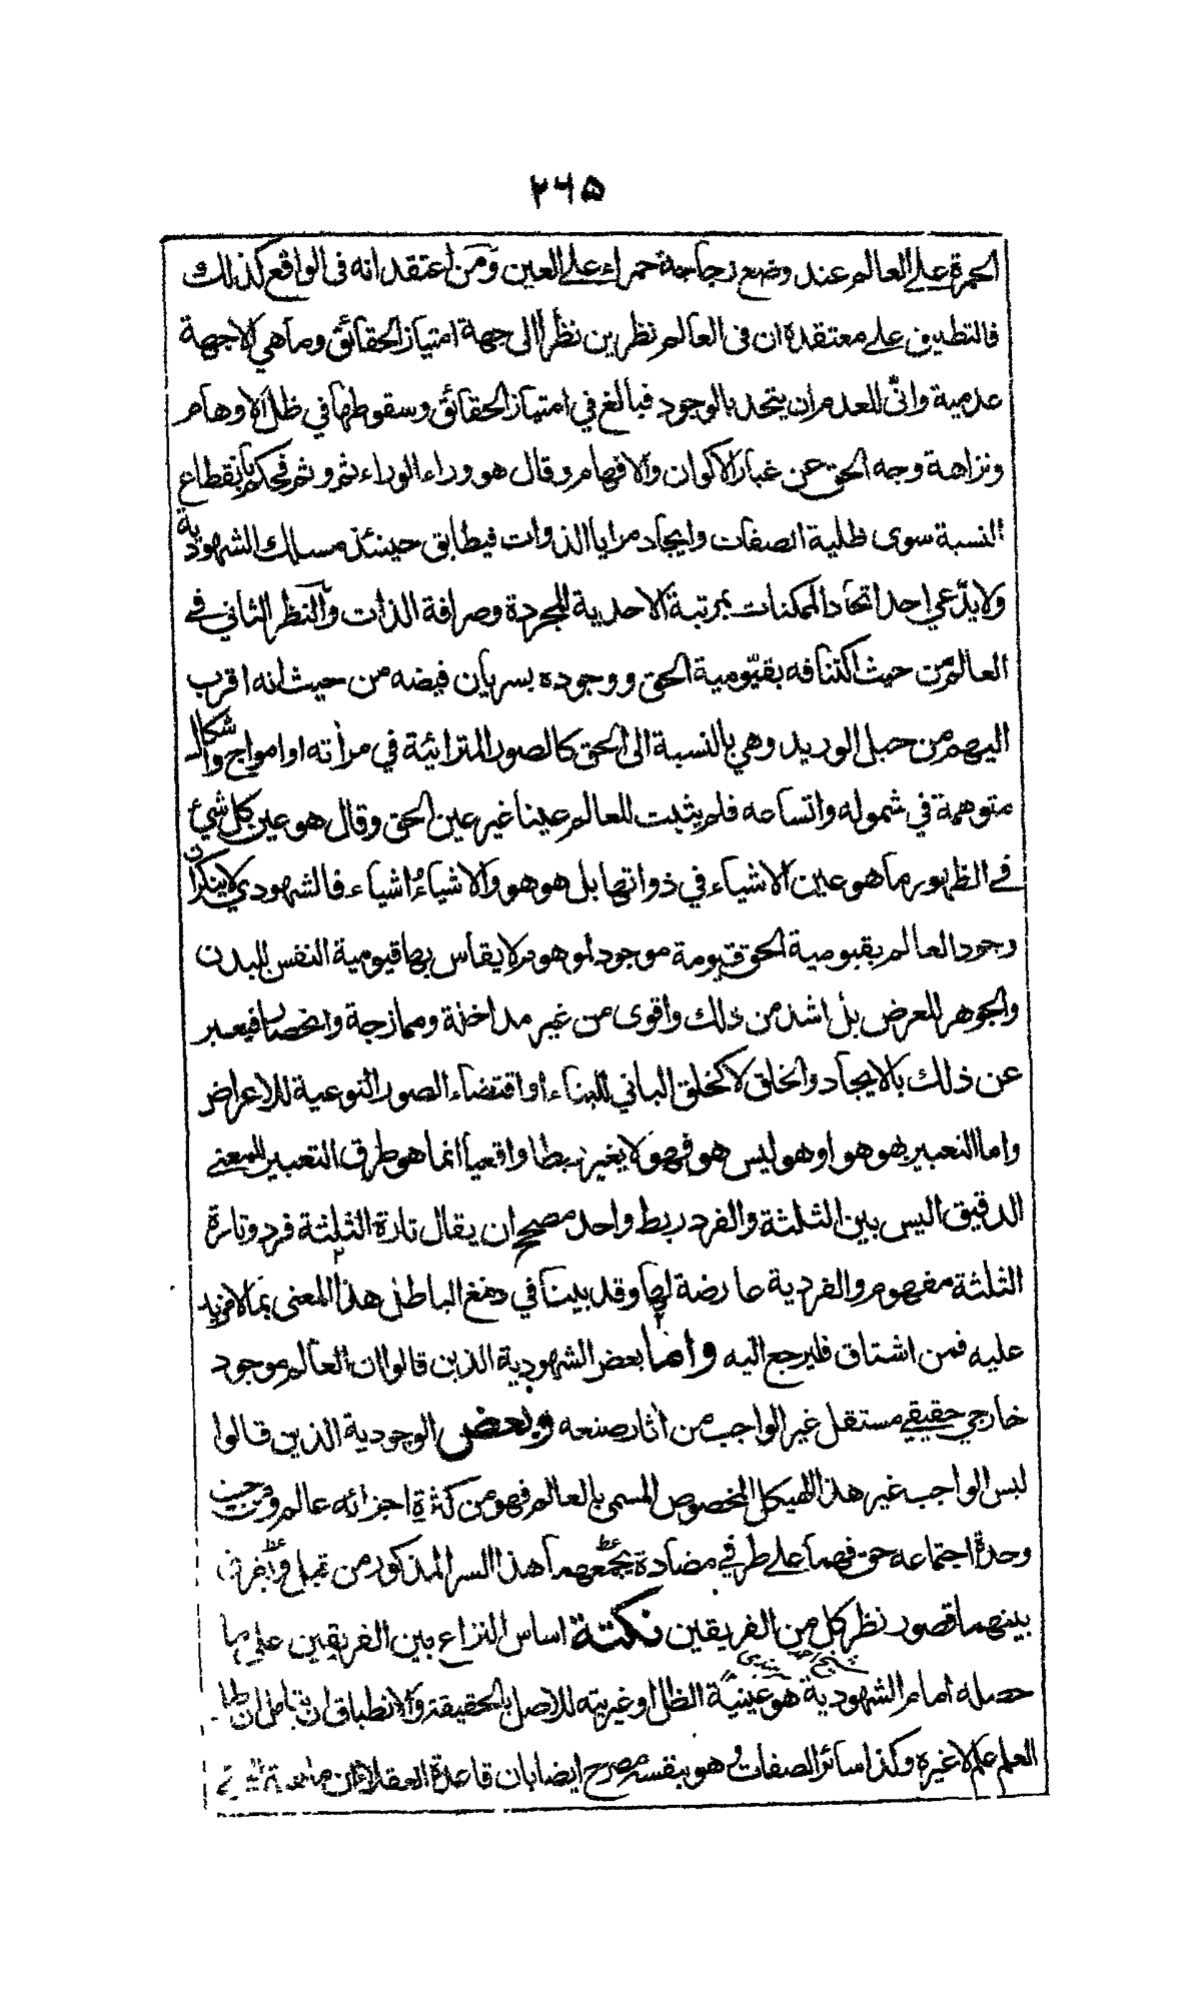 ۲۶۵
الحمرة على العالم عند وضع زجاجة حمراء على العين ومن اعتقد انه فى الواقع كذلك
فالتطبيق على معتقده ان فى العالم نظرين نظرا الى جهة امتياز الحقائق وما هي الا جهة
عدمية وانّى للعدم ان يتحد بالوجود فبالغ في امتياز الحقائق وسقوطها في ظل الاوهام
ونزاهة وجه الحق عن غبار الاكوان والافهام وقال هو وراء الوراء ثم وثم فحكم بانقطاع
النسبة سوى ظلية الصفات وايجاد مرايا الذوات فيطابق حينئذ مسلك الشهودية
ولا يدّعي احد اتحاد الممكنات بمرتبة الاحدية المجردة وصرافة الذات والنظر الثاني في
العالم من حيث اكتنافه بقيّومية الحق ووجوده بسريان فيضه من حيث انه اقرب
اليهم من حبل الوريد وهي بالنسبة الى الحق كالصور المترائية في مرأته او امواج واشكال
متوهمة في شموله واتساعه فلم يثبت للعالم عينا غير عين الحق وقال هو عين كل شيئ
في الظهور ما هو عين الاشياء في ذواتها بل هو هو والاشياء اشياء فالشهودي لا ينكر ان
وجود العالم بقيومية الحق قيومة موجود لو هو لا يقاس بها قيومية النفس للبدن
والجوهر للعرض بل اشد من ذلك واقوى من غير مداخلة وممازجة وانحصار فيعبر
عن ذلك بالايجاد والخلق لا كخلق الباني للبناء او اقتضاء الصور النوعية للاعراض
واما التعبير بهو هو او هو ليس هو فهو لا يغير ربطا واقعيا انما هو طرق التعبير للمعنى
الدقيق اليس بين الثلثة والفرد ربط واحد مصحح ان يقال تارة الثلثة فرد وتارة
الثلثة مفهوم والفردية عارضة لها وقد بينا في دمغ الباطل هذا المعنى بما لا مزيد
عليه فمن اشتاق فليرجع اليه واما بعض الشهودية الذين قالوا ان العالم موجود
خارجي حقيقي مستقل غير الواجب من أثار صنعه وبعض الوجودية الذين قالوا
ليس الواجب غير هذا الهيكل المخصوص المسمى بالعالم فهو من كثرة اجزائه عالم ومن حيث
وحدة اجتماعه حق فهما على طرفي مضادة يجمعهما هذا السر المذكور من قبل
بينهما قصور نظر كل من الفريقين نكتة اساس النزاع بين الفريقين على ما
حصله امام الشهودية هو عينية الظل او غيريته للاصل بالحقيقة والانطباق
العلم علم لا غيره وكذا سائر الصفات وهو بنفسه مصرح ايضا بان قاعدة العقلاء ان